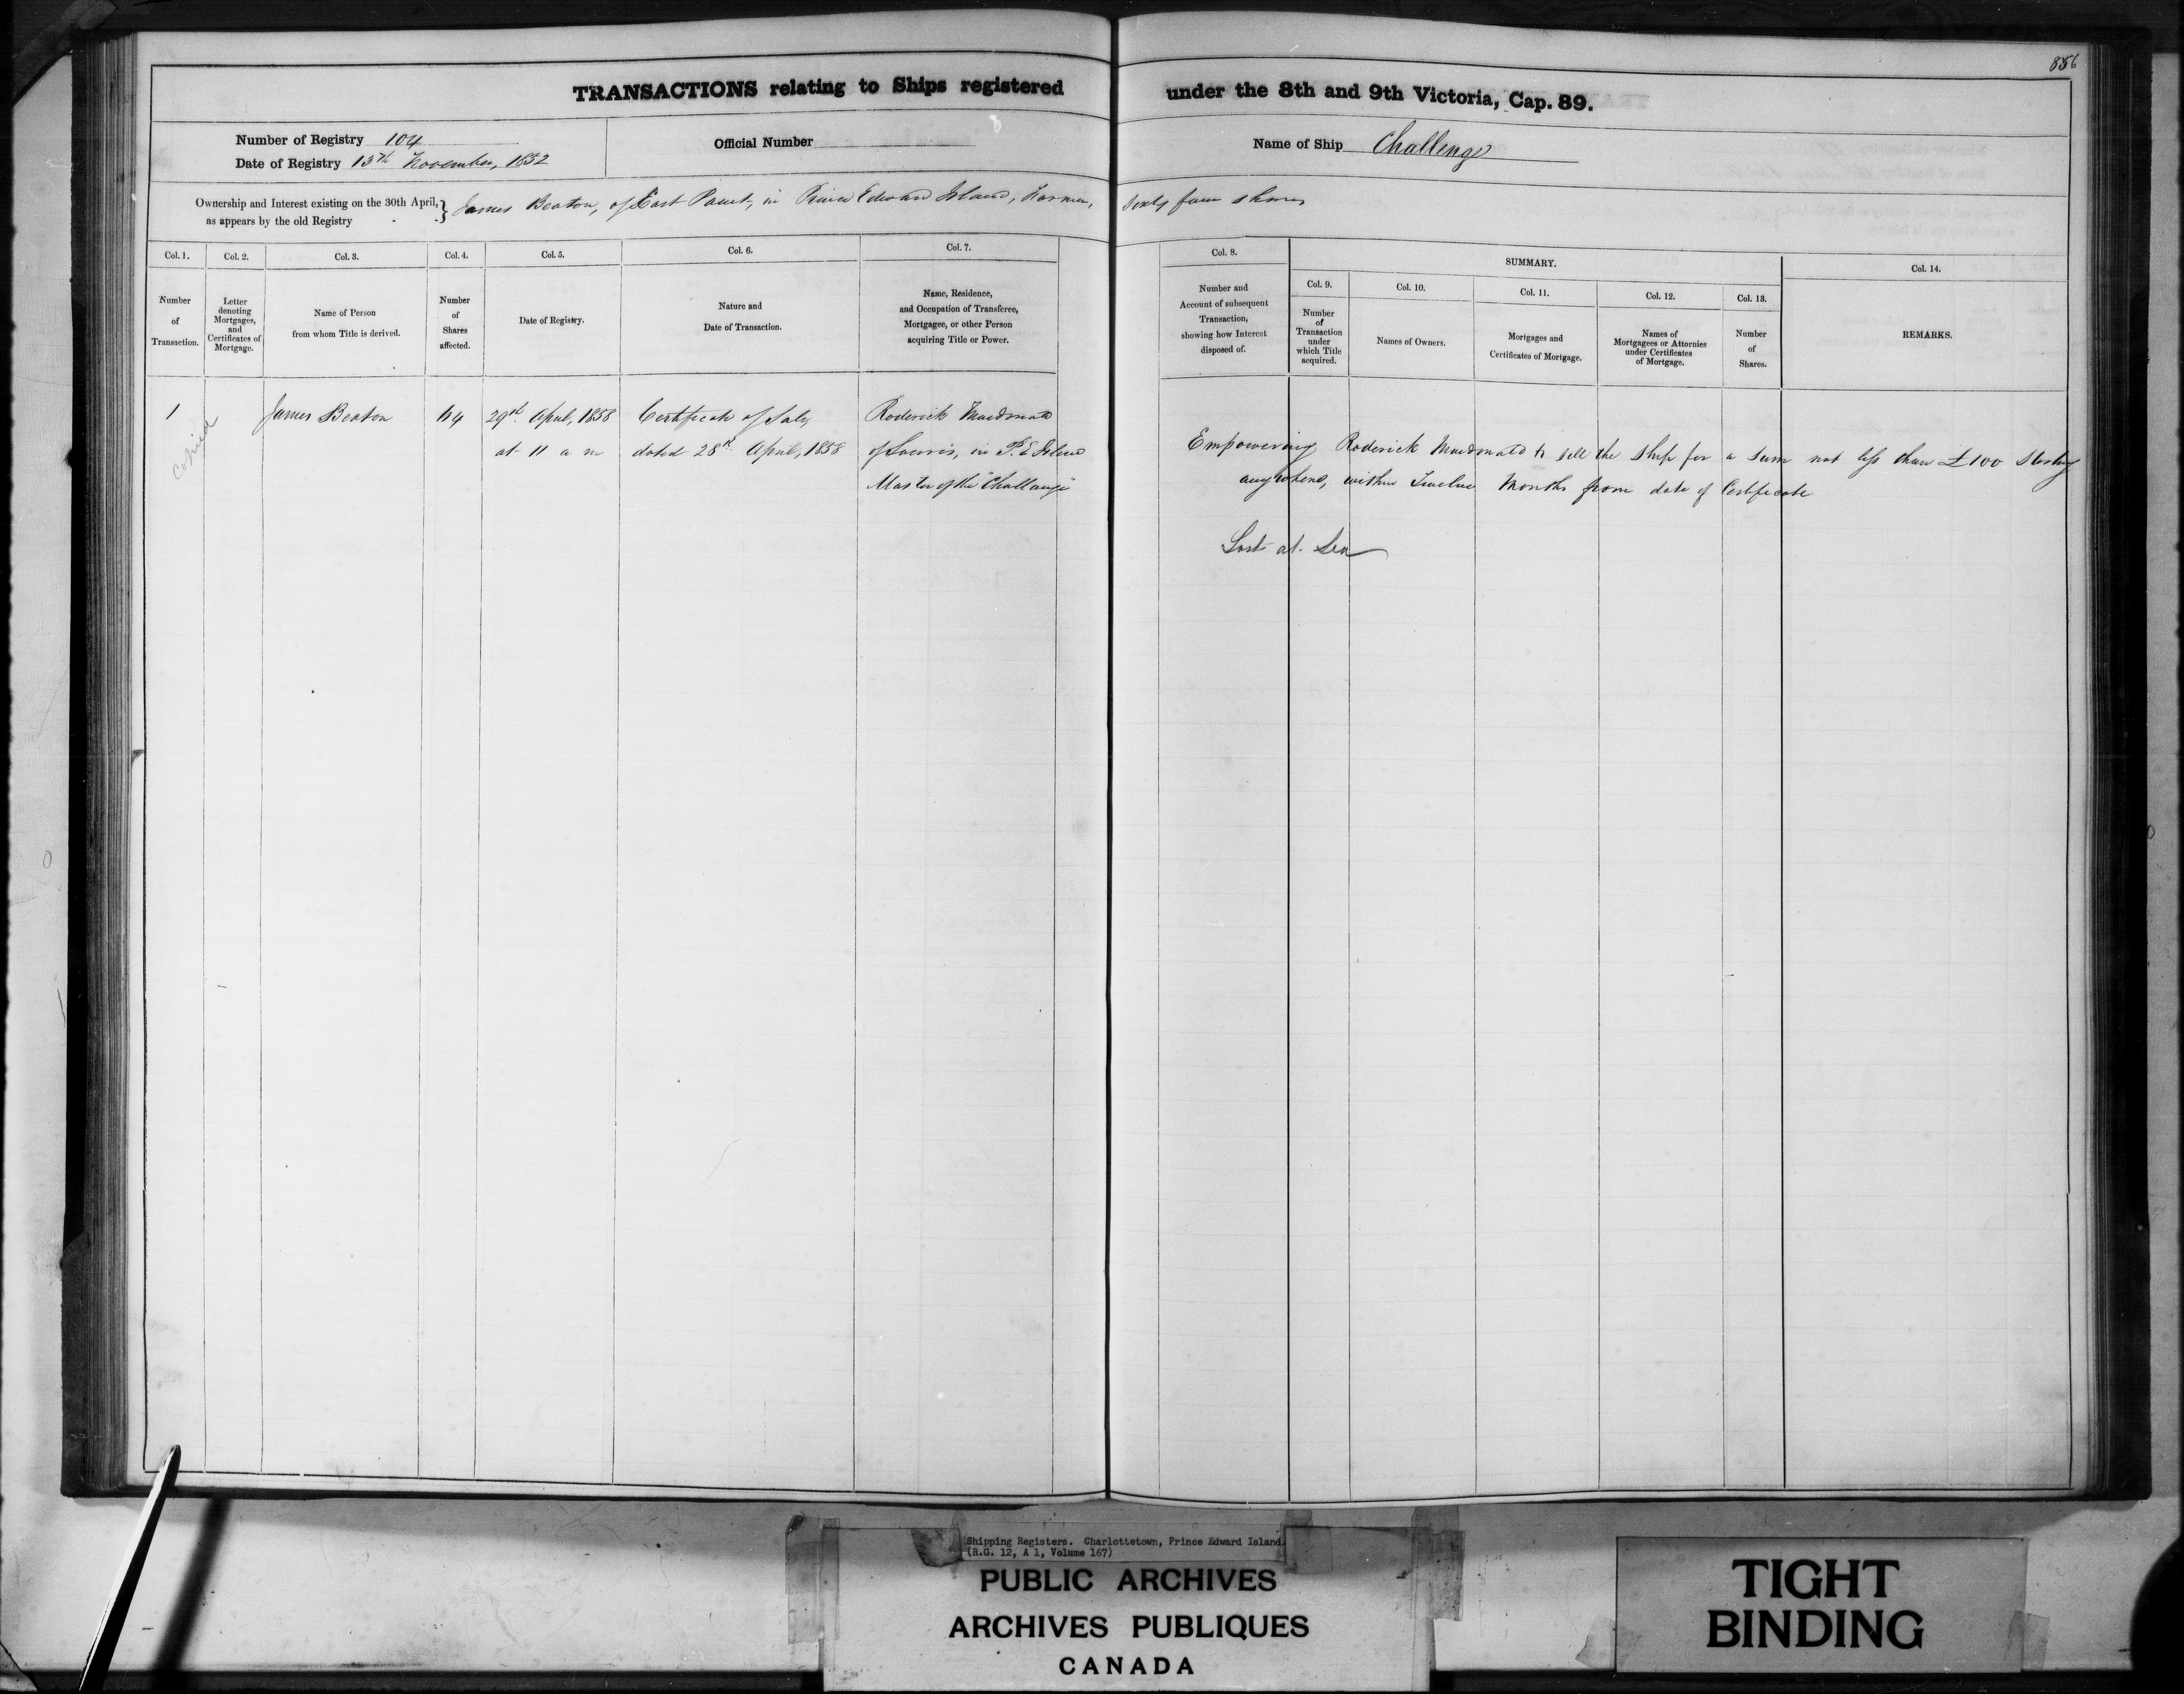 856
TRANSACTIONS relating to Ships registered under the 8th and 9th Victoria, Cap. 89.
Number of Registry 104
Date of Registry 15th November, 1852
Official Number
Name of Ship Challenge
Ownership and Interest existing on the 30th April, as appears by the old Registry } James Beaton, of East Point, in Prince Edward Island, Farmer, Sixty four shares
Col. 1.
Number
of
Transaction.
Col. 2.
Letter
denoting
Mortgages,
and
Certificates of
Mortgage.
Col. 3.
Name of Person
from whom Title is derived.
Col. 4.
Number
of
Shares
affected.
Col. 5.
Date of Registry.
Col. 6.
Nature and
Date of Transaction.
Col. 7.
Name, Residence,
and Occupation of Transferee,
Mortgagee, or other Person
acquiring Title or Power.
Col. 8.
Number and
Account of subsequent
Transaction,
showing how Interest
disposed of.
SUMMARY.
Col. 9.
Number
of
Transaction
under
which Title
acquired.
Col. 10.
Names of Owners.
Col. 11.
Mortgages and
Certificates of Mortgage.
Col. 12.
Names of
Mortgagees or Attornies
under Certificates
of Mortgage.
Col. 13.
Number
of
Shares.
Col. 14.
REMARKS.
1
Copied
James Beaton
64
29th April, 1858
at 11 a m
Certificate of Sale
dated 28th April, 1858
Roderick Macdonald
of Souris, in P. E Island
Master of the "Challenge"
Empowering Roderick Macdonald to sell the Ship for a Sum not less than £100 Sterling
anywhere, within Twelve Months from date of Certificate
Lost at Sea
Shipping Registers. Charlottetown, Prince Edward Island.
(R.G. 12, A 1, Volume 167)
PUBLIC ARCHIVES
ARCHIVES PUBLIQUES
CANADA
TIGHT
BINDING